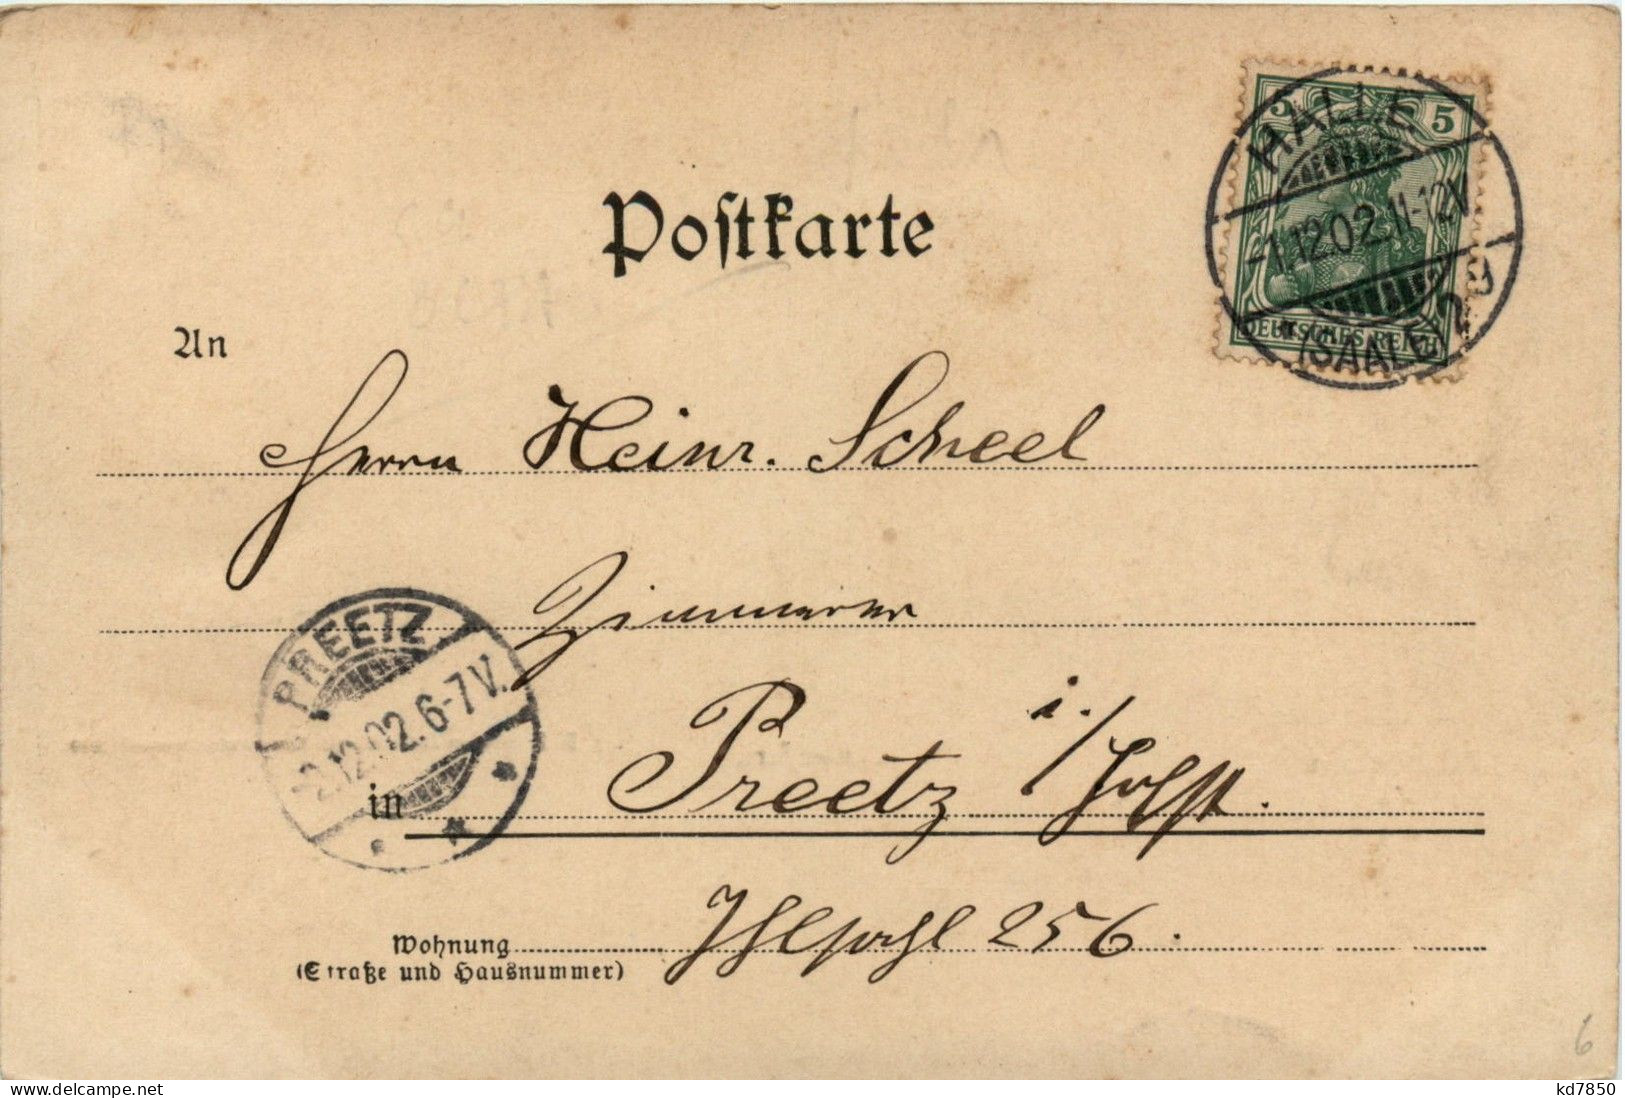 Postkarte
5 5
HALLE
-1.12.02.11-12V
DEUTSCHES REICH
(SAALE) 2
An
Herrn Heinr. Scheel
Zimmerer
PREETZ
-2.12.02.6-7V.
in Preetz i./Holst.
Wohnung 256.
(Straße und Hausnummer)
6
www.delcampe.net
kd7850